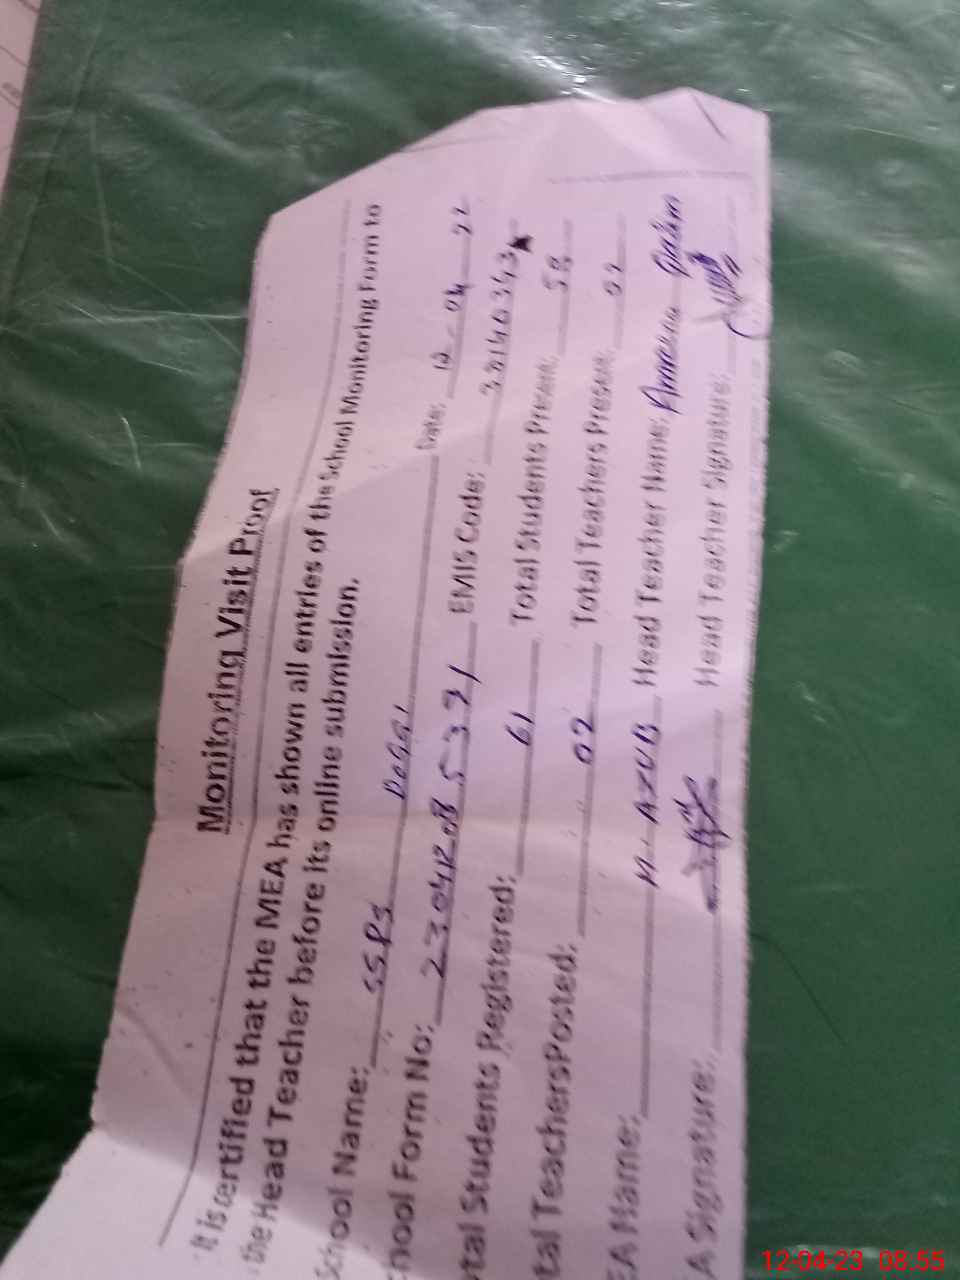 Monitoring Visit Proof
It is certified that the MEA has shown all entries of the School Monitoring Form to
the Head Teacher before its online submission.
School Name: SSPS Daggi Date: 12-04-22
hool Form No: 230412085321 EMIS Code:
tal Students Registered: 61 Total Students Present: 58
tal TeachersPosted: 02 Total Teachers Present: 02
EA Name: M. AZUB Head Teacher Name:
A Signature: Head Teacher Signature:
12-04-23 08:55